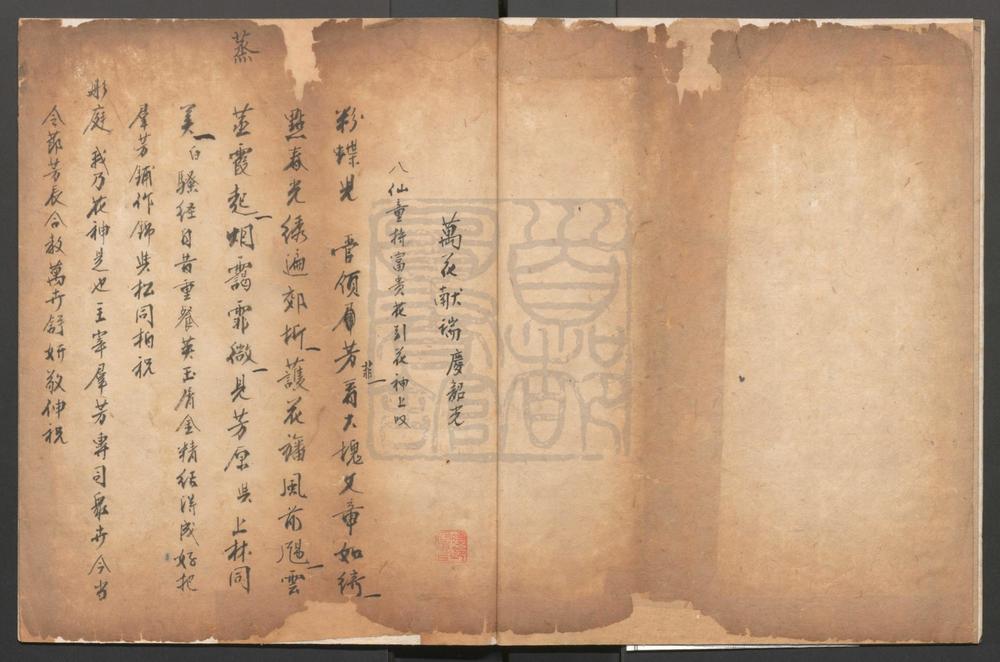 萬花献瑞慶韶光
八仙童持富貴花引花神上唱
粉蝶児 管領羣芳看大塊文章如綺
點春光綉遍郊圻護花旛風前颺雲
蒸霞起烟靄霏微見芳原與上林同
美白騷經自昔重餐英玉屑金精结得成好把
羣芳鋪作錦與松同柏祝
彤庭 我乃花神是也主宰羣芳專司衆卉今当
令節芳辰合教萬卉舒妍敬伸祝
蒸